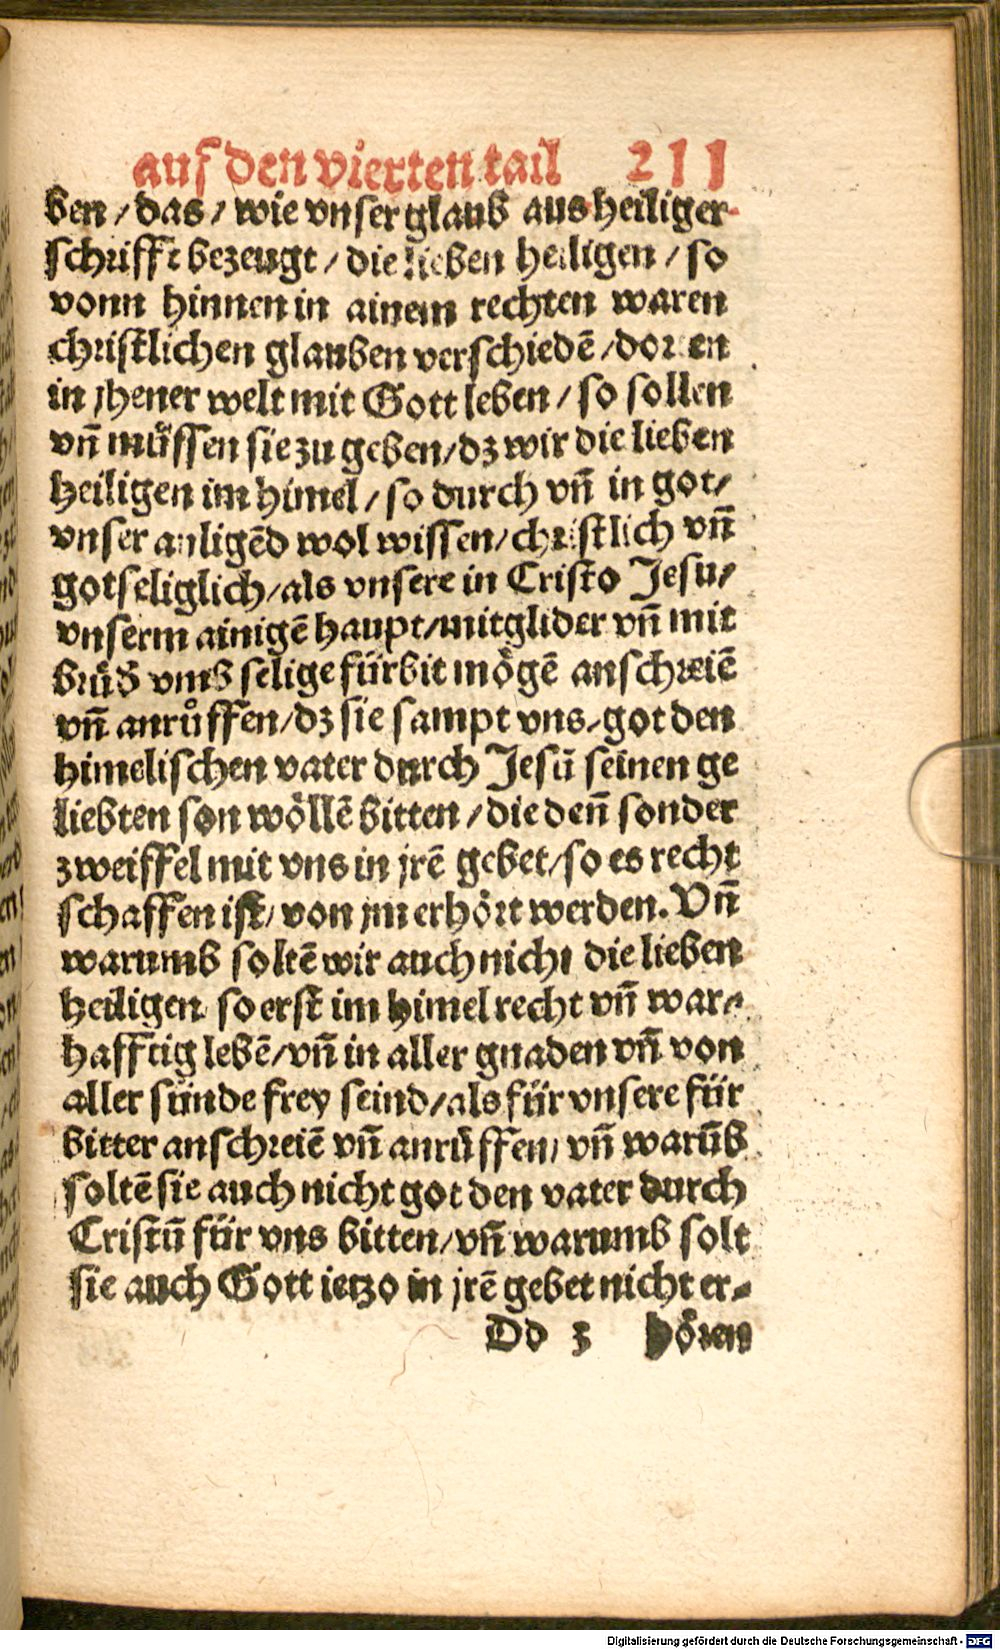 auf den vierten tail 211
ben / das / wie vnser glaub aus heiliger
schrifft bezeugt / die lieben heiligen / so
vonn hinnen in ainem rechten waren
christlichen glauben verschiedē / doren
in jhener welt mit Gott leben / so sollen
vñ müssen sie zu geben / dz wir die lieben
heiligen im himel / so durch vñ in got /
vnser anligēd wol wissen / christlich vñ
gotseliglich / als vnsere in Cristo Jesu /
vnserm ainigē haupt / mitglider vñ mit
brüd vmb selige fürbit mögē anschreiē
vñ anrůffen / dz sie sampt vns / got den
himelischen vater durch Jesū seinen ge
liebten son wöllē bitten / die deñ sonder
zweiffel mit vns in jrē gebet / so es recht
schaffen ist / von jm erhört werden. Vñ
warumb soltē wir auch nicht die lieben
heiligen so erst im himel recht vñ war-
hafftig lebē / vñ in aller gnaden vñ von
aller sünde frey seind / als für vnsere für
bitter anschreiē vñ anrüffen / vñ warūb
soltē sie auch nicht got den vater durch
Cristū für vns bitten / vñ warumb solt
sie auch Gott ietzo in jrē gebet nicht er-
Dd 3 hören
Digitalisierung gefördert durch die Deutsche Forschungsgemeinschaft - DFG